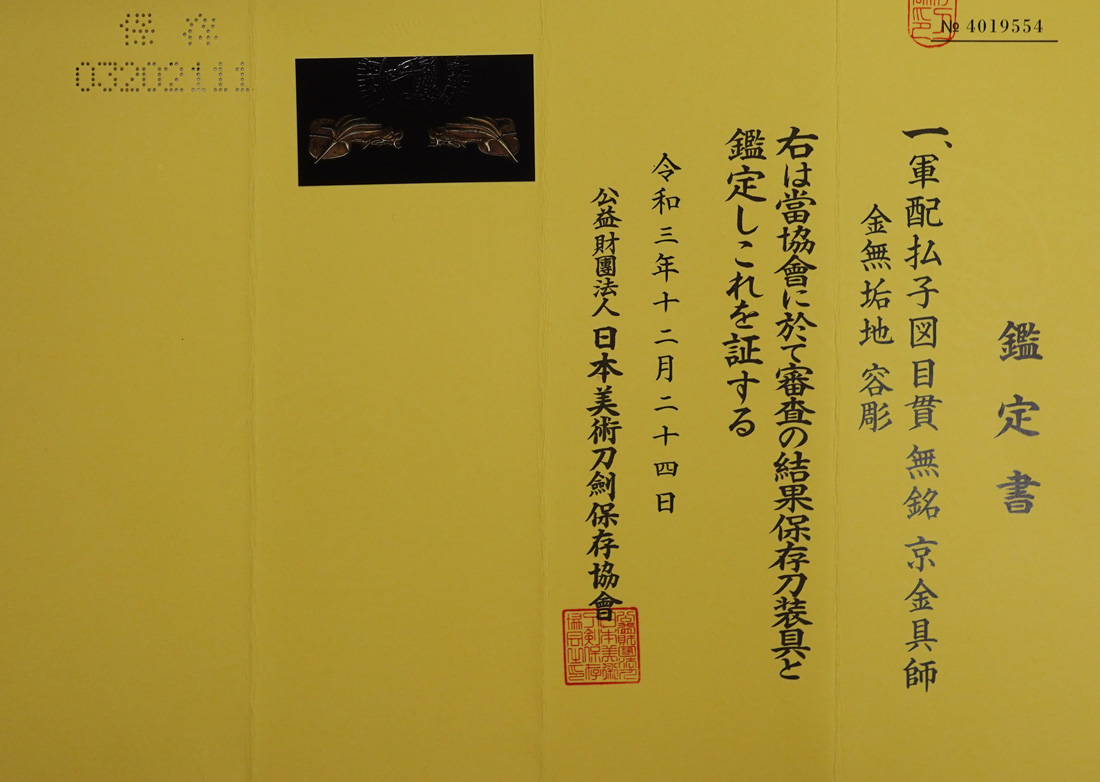 № 4019554
鑑定書
一、軍配払子図目貫 無銘 京金具師
金無垢地 容彫
右は當協會に於て審査の結果保存刀装具と
鑑定しこれを証する
令和三年十二月二十四日
公益財團法人 日本美術刀劍保存協會
保存
03202111